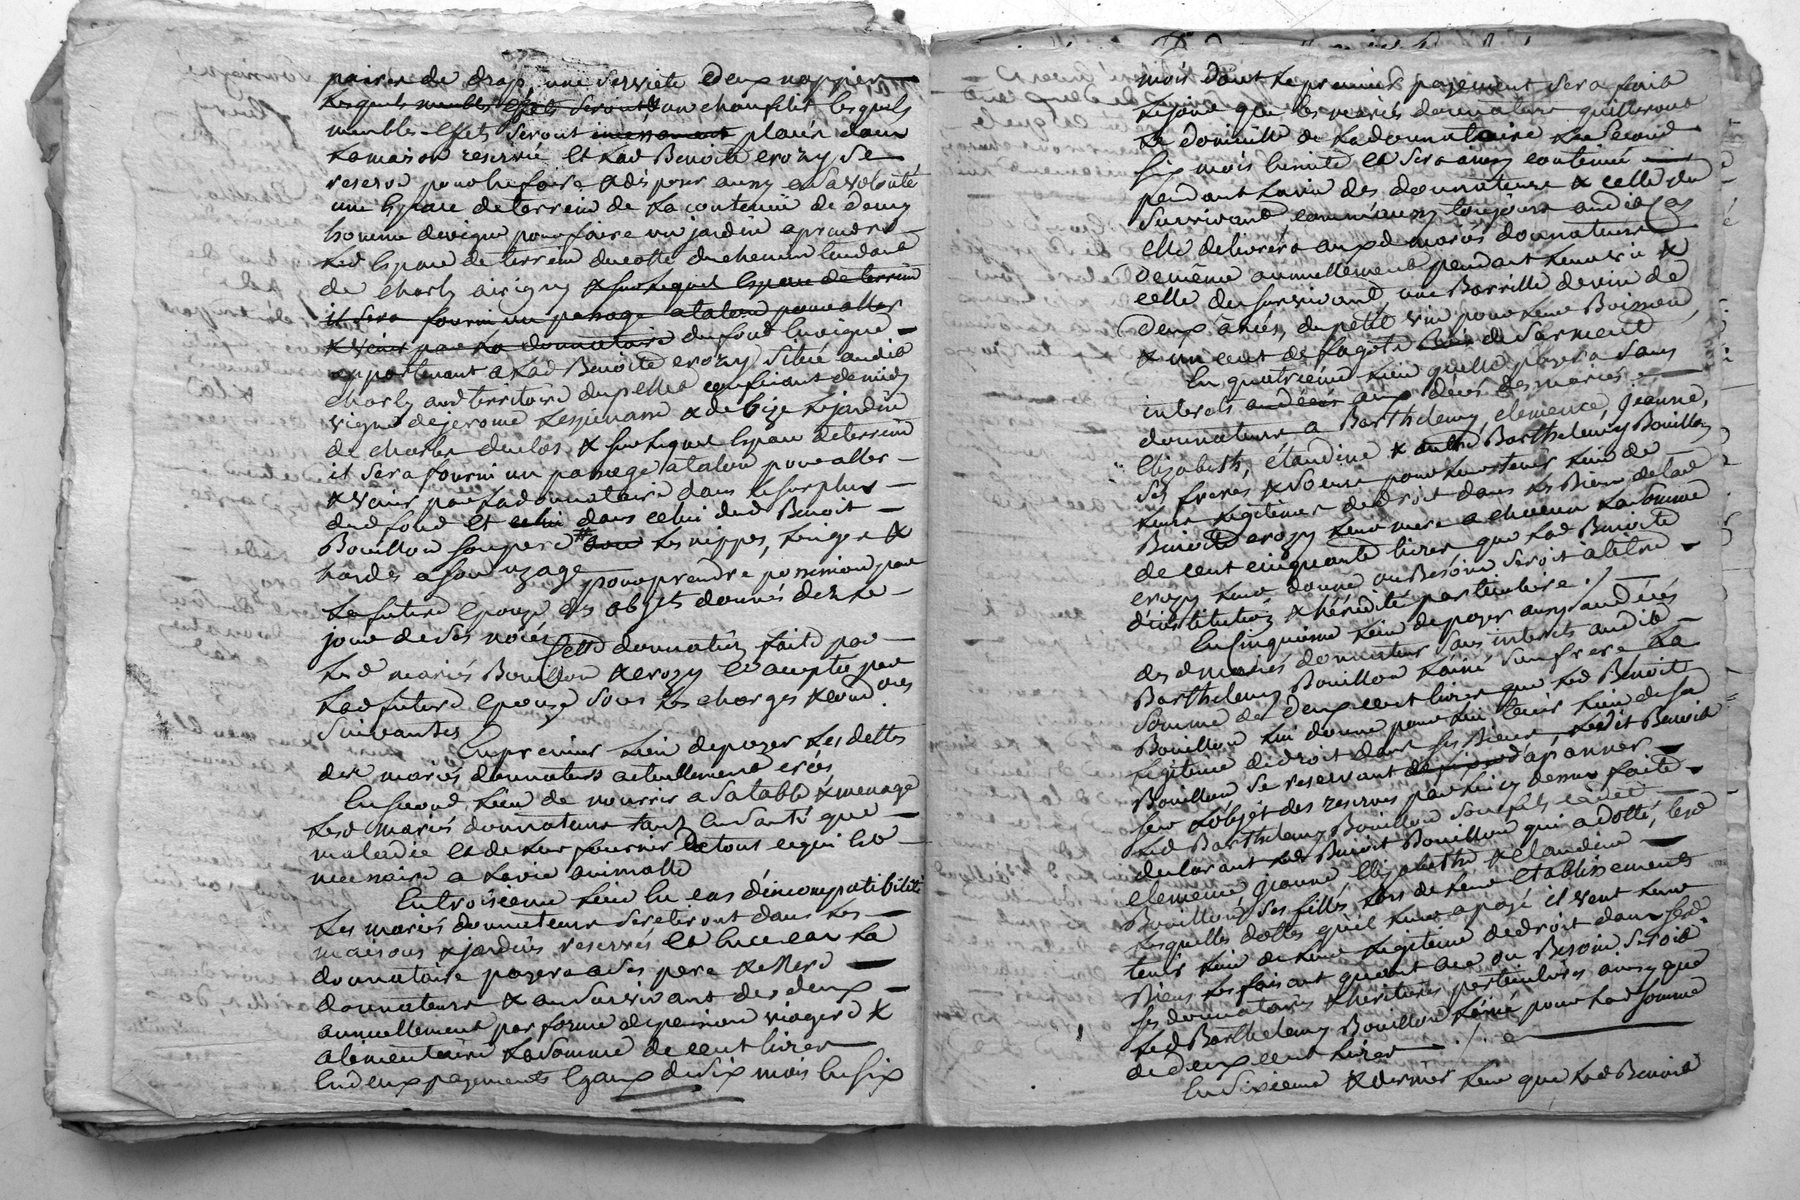 paires de drap, une serviete & deux nappier
lesquels meubles effets seront un chaufelit lesquels
meubles effets seront placés dans
la maison reservée et lad Benoite crozy se
reserve pour les faire & disposer ainsy a sa volonté
une espace de terrein de la contenue de demy
homme de vigne pour faire un jardin a prendre
led espace de terrein du cotté du chemin tendant
de charly a irigny & sur lequel espace de terrein
il sera fourni un passage a talon pour aller
& venir par la donnataire du fond en vigne
appartenant a lad Benoite crozy situé audit
charly aud territoire du pellet confinant de midy
vigne de jerome Lespinasse & de bize le jardin
de charles duclos & sur lequel espace de terrein
il sera fourni un passage a talon pour aller
& venir par la donnataire dans le surplus
dud fond et celui dans celui dud Benoit
Bouillon son pere # les nippes, linges &
hardes a son uzage
pour prendre possession par
la future epouze des objets donnés dez le
jour de ses noces
Cette donnation faite par
lesd mariés Bouillon & crozy et acceptée par
lad future epouze sous les charges & conditions
suivantes
En premier lieu de payer les dettes
desd mariés donnateurs actuellement créés
En second lieu de nourrir a sa table & menage
lesd mariés donnateurs tant en santé que
maladie et de leur fournir de tout ce qui est
necessaire a la vie animalle
En troisieme lieu en cas d'incompatibilité
les mariés donnateurs se retiront dans les
maisons & jardins reservés et en ce cas la
donnataire payera a ses pere & mere
donnateurs & au survivant des deux
annuellement par forme de pension viagere &
alementaire la somme de cent livres
en deux payements egaux de six mois en six
mois dont le premier payement sera fait
le jour que les mariés donnateurs quitteront
le domicille de la donnataire le second
six mois ensuite et sera ainsy continué
pendant la vie des donnateurs & celle du
survivant comme aussy toujours aud cas
elle delivrera auxd mariés donnateurs
de même annuellement pendant leur vie &
celle du survivant, une Barrille de vin de
deux anées du petit vin pour leur Boisson
& un cent de fagots de sarment
En quatrieme lieu quelle payera sans
interets aux decès des mariés
donnateurs a Barthelemy, clemence, Jeanne,
Elizabeth, claudine & autre Barthelemy Bouillon
ses freres & soeurs pour leur tenir lieu de
leur legitime de droit dans les Biens de lad
Benoite crozy leur mere a chacun la somme
de cent cinquante livres que lad Benoite
crozy leur donne au Besoin seroit a titre
d'institution & heredité particuliere ./
En cinquieme lieu de payer aussy aud decès
desd mariés donnateurs sans interets audit
Barthelemy Bouillon l'ainé son frere la
somme de deux cent livres que led Benoit
Bouillon lui donne pour lui tenir lieu de sa
legitime de droit dans ses Biens, ledit Benoit
Bouillon se reservant d'apanner
sur l'objet des reserves par lui cy dessus faites
led Barthelemy Bouillon son fils cadet
declarant led Benoit Bouillon qui a dotté, lesd
clemence, jeanne, Elizabeth & Claudine
Bouillon ses filles lors de leur etablissements
lesquelles dottes qu'il leur a payé il veut leur
tenir lieu de leur legitime de droit dans sesd
Biens les faisant quant a ce ou Besoin seroit
ses donnataires & heritieres particulieres ainsy que
led Barthelemy Bouillon l'ainé pour lad somme
de deux cent livres ./.
En sixieme & dernier lieu que lad Benoit